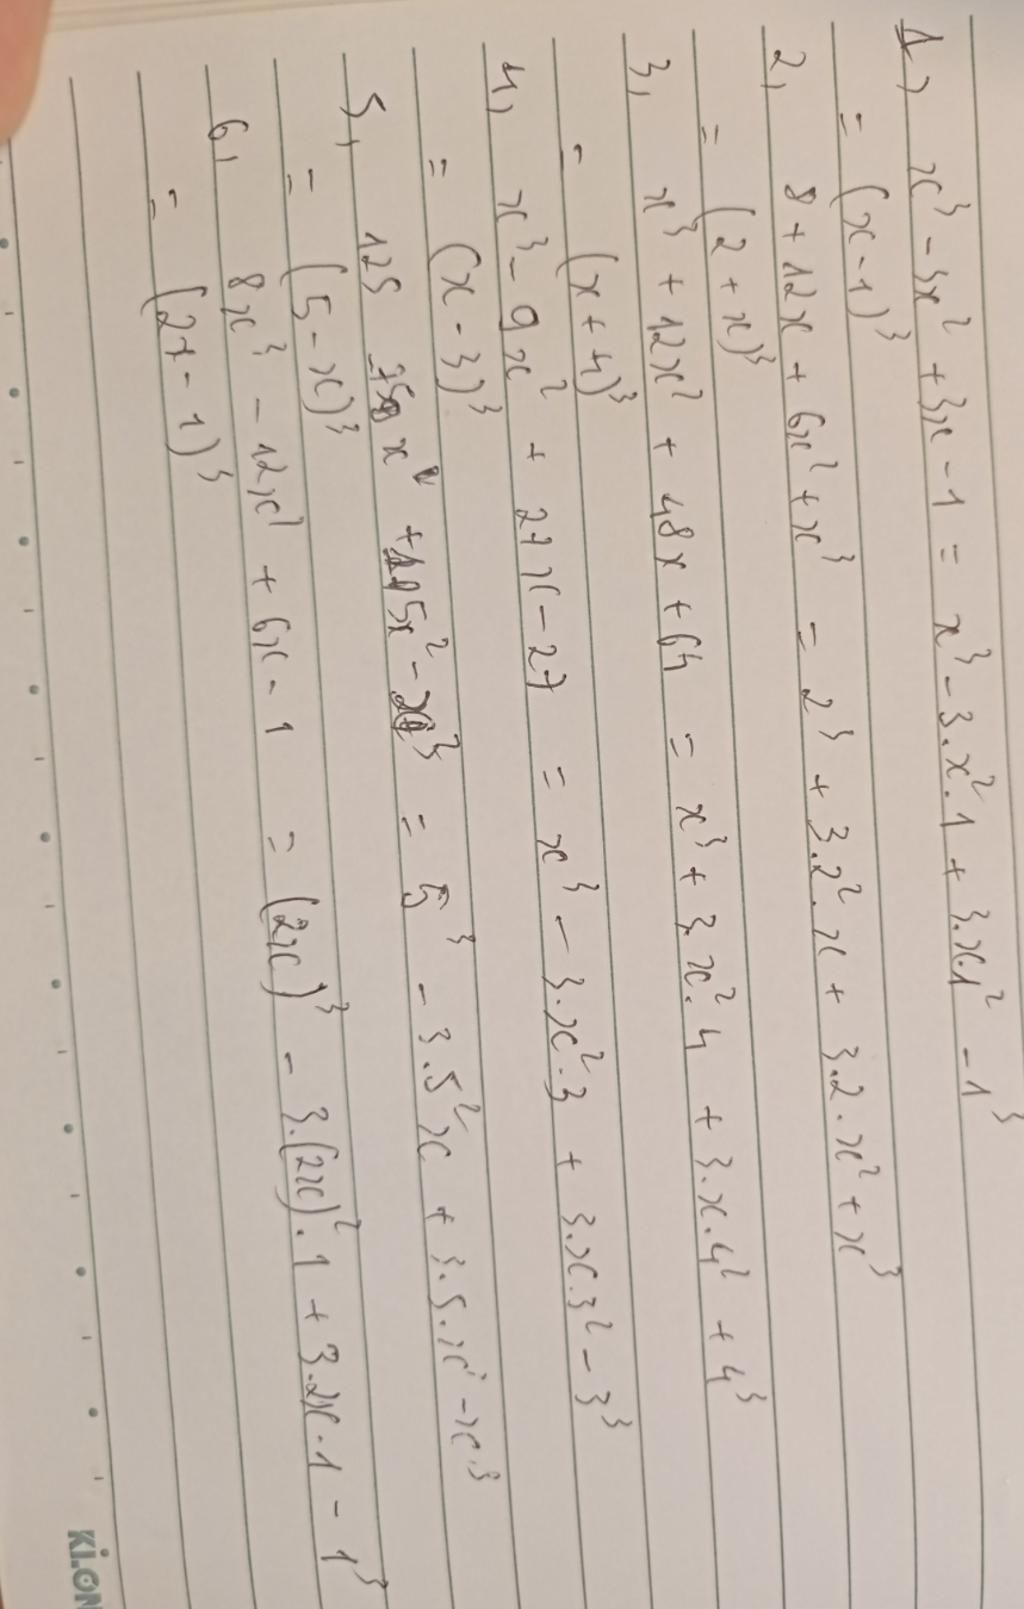 1, x³ - 3x² + 3x - 1 = x³ - 3.x².1 + 3.x.1² - 1³
= (x - 1)³
2, 8 + 12x + 6x² + x³ = 2³ + 3.2².x + 3.2.x² + x³
= (2 + x)³
3, x³ + 12x² + 48x + 64 = x³ + 3.x².4 + 3.x.4² + 4³
= (x + 4)³
4, x³ - 9x² + 27x - 27 = x³ - 3.x².3 + 3.x.3² - 3³
= (x - 3)³
5, 125 - 75x + 15x² - x³ = 5³ - 3.5²x + 3.5.x² - x³
= (5 - x)³
6, 8x³ - 12x² + 6x - 1 = (2x)³ - 3.(2x)².1 + 3.2x.1 - 1³
= (2x - 1)³
KI.ON